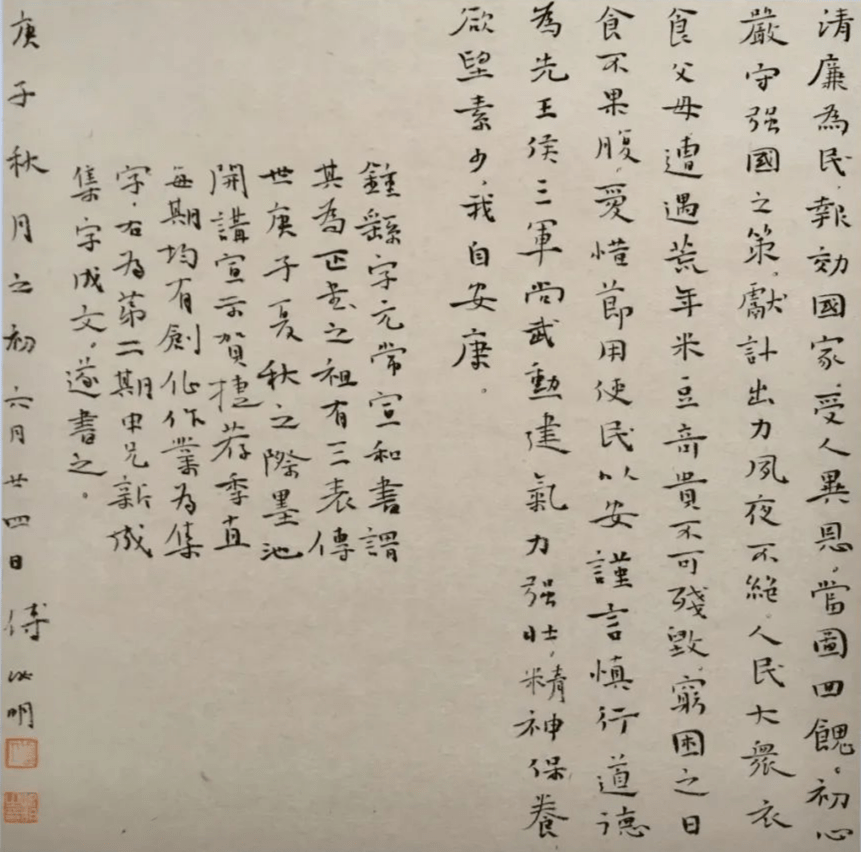 清廉為民，報効國家，受人異恩，當圖回餽。初心
嚴守强國之策，獻計出力夙夜不絶，人民大衆衣
食父母遭遇荒年米豆奇貴不可殘毀，窮困之日
食不果腹，愛惜節用使民以安謹言慎行道德
為先王侯三軍尚武勳建氣力强壯，精神保養
欲望素少，我自安康。
鍾繇字元常宣和書謂
其為正書之祖有三表傳
世庚子夏秋之際墨池
開講宣示賀捷荐季直
每期均有創作作業為集
字，右為第二期申兄新成
集字成文，遂書之。
庚子秋月之初六月廿四日傅 明